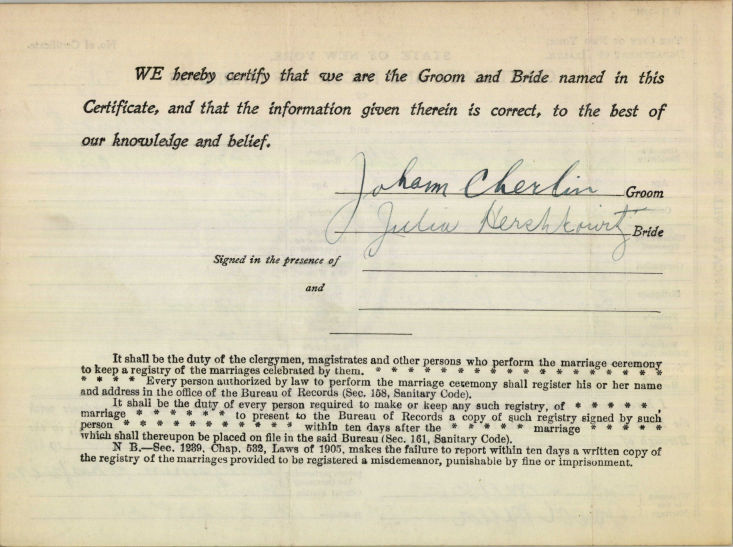 WE hereby certify that we are the Groom and Bride named in this
Certificate, and that the information given therein is correct, to the best of
our knowledge and belief.
Joham Cherlin Groom
Julia Hershkowitz Bride
Signed in the presence of
and
It shall be the duty of the clergymen, magistrates and other persons who perform the marriage ceremony
to keep a registry of the marriages celebrated by them. * * * * * * * * * * * * * * * * *
* * * * Every person authorized by law to perform the marriage ceremony shall register his or her name
and address in the office of the Bureau of Records (Sec. 158, Sanitary Code).
It shall be the duty of every person required to make or keep any such registry, of * * * * * ,
marriage * * * * * * to present to the Bureau of Records a copy of such registry signed by such
person * * * * * * * * * * within ten days after the * * * * * marriage * * * * *
which shall thereupon be placed on file in the said Bureau (Sec. 161, Sanitary Code).
N B.—Sec. 1239, Chap. 532, Laws of 1905, makes the failure to report within ten days a written copy of
the registry of the marriages provided to be registered a misdemeanor, punishable by fine or imprisonment.